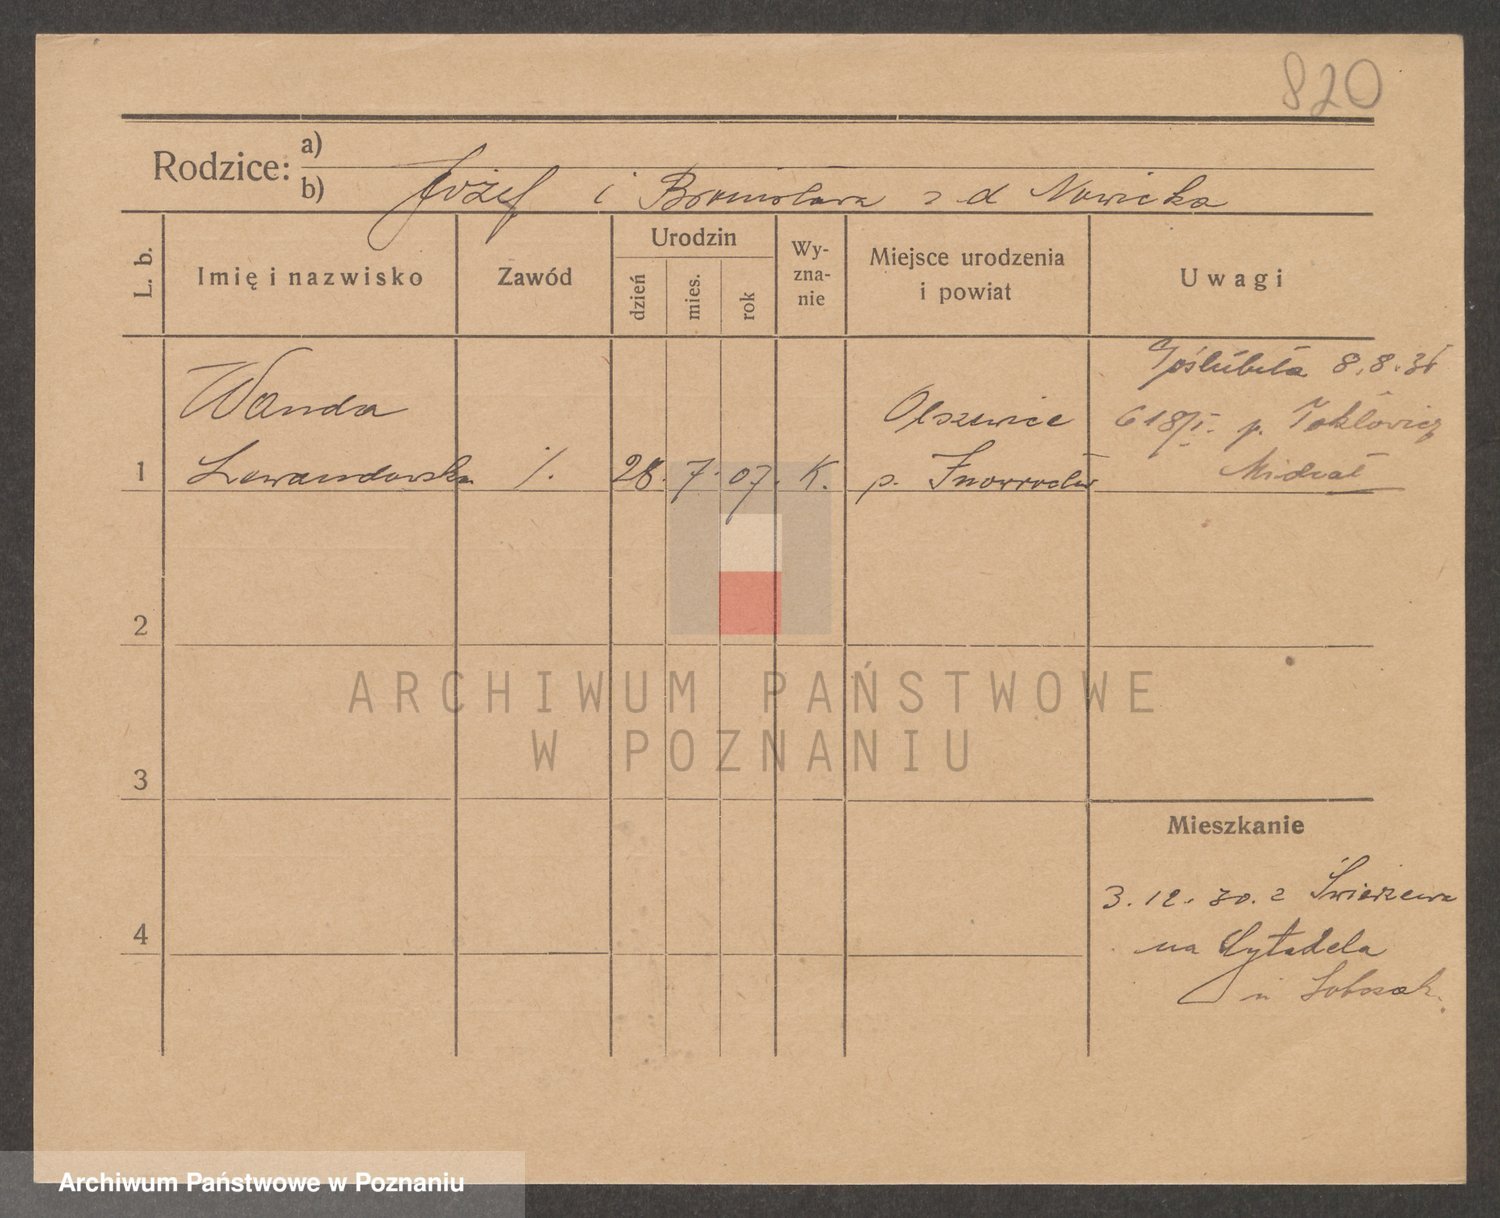 820
Rodzice: a)
b) Józef i Bronisława z d Nowicka
L. b.
Imię i nazwisko
Zawód
Urodzin
dzień
mies.
rok
Wy-
zna-
nie
Miejsce urodzenia
i powiat
Uwagi
1
Wanda
Lewandowska
/.
28. 7. 07.
K.
Olszewice
p. Inowrocław
Poślubiła 8.8.36
618/I. p.
2
3
4
Mieszkanie
3. 12. 30. z Świerzewa
na Cytadela
ARCHIWUM PAŃSTWOWE
W POZNANIU
Archiwum Państwowe w Poznaniu